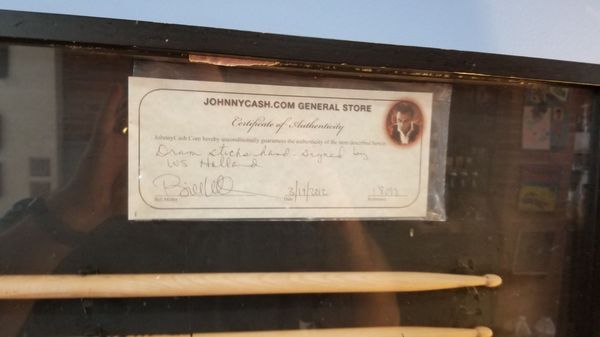 JOHNNYCASH.COM GENERAL STORE
Certificate of Authenticity
JohnnyCash.Com hereby unconditionally guarantees the authenticity of the item described herein
Drum sticks hand-signed by
WS Holland
3/17/2012
Bill Miller
Date
Reference